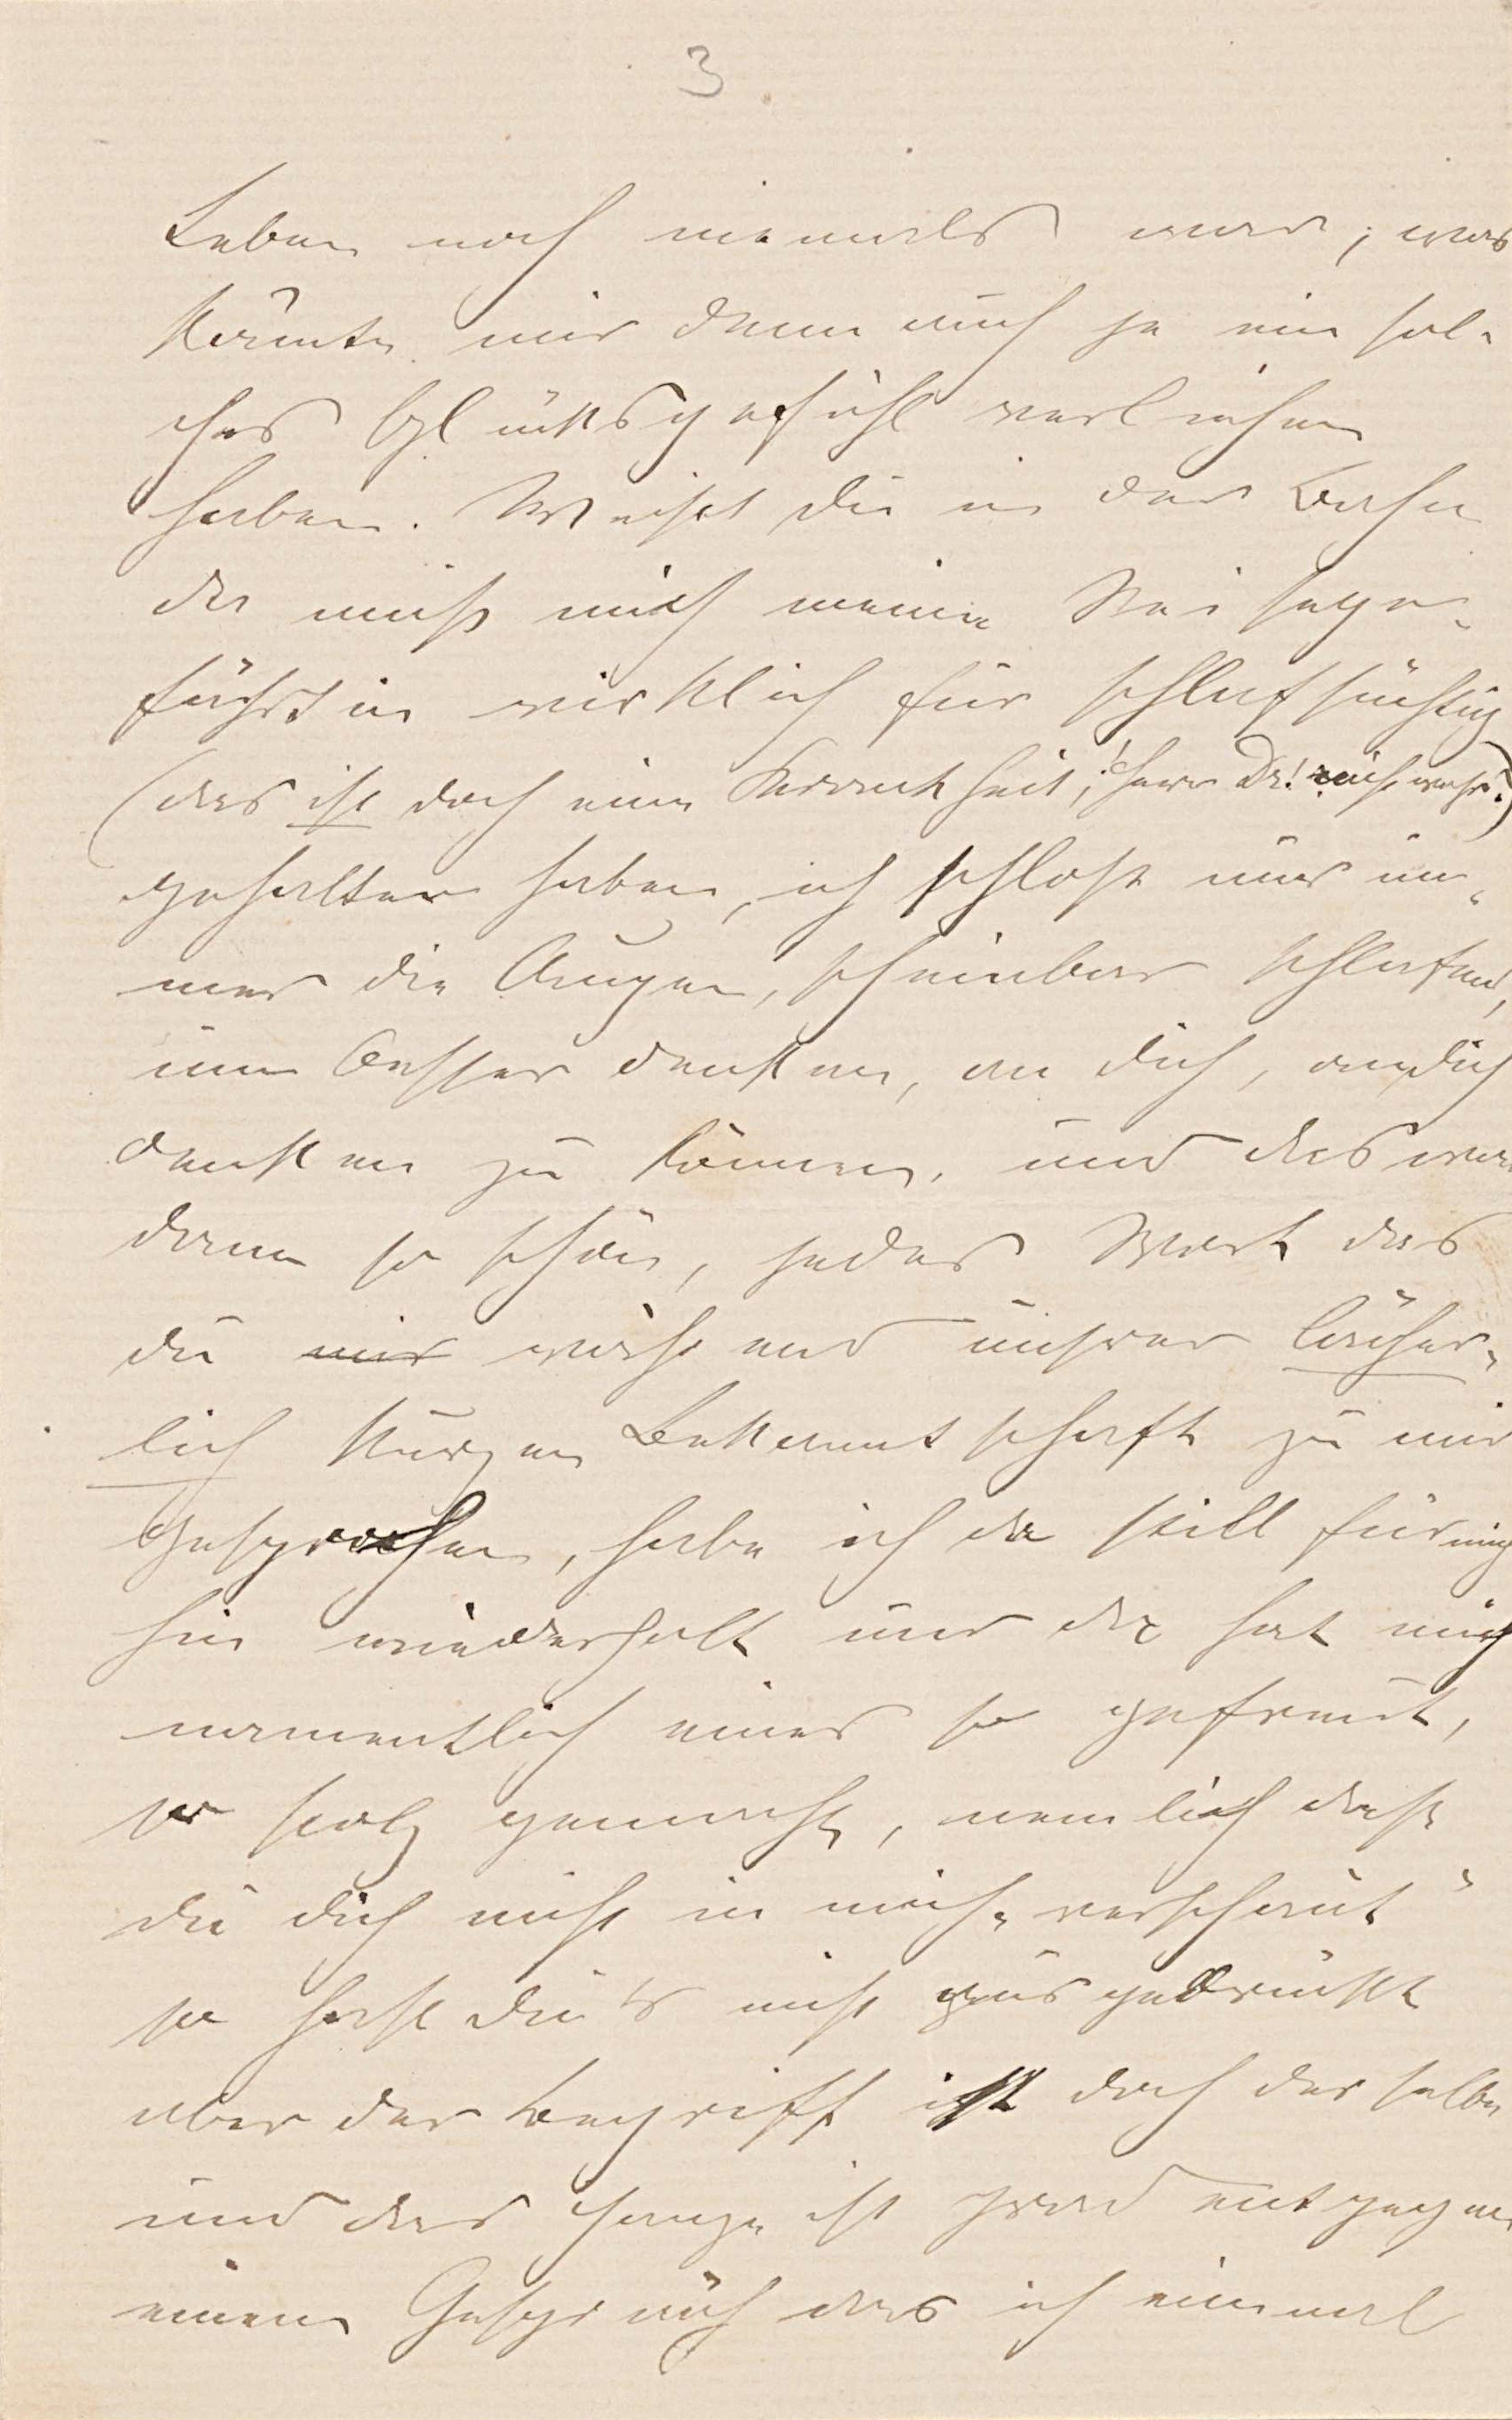 3
Leben noch niemals war, was
könnte mir denn auch je ein sol-
ches Glücksgefühl verliehen
haben. Weißt du in der Bahn
da muß mich meine Reisege-
fährtin wirklich für schlafsüchtig
(das ist doch eine Krankheit, Herr Dr! nicht wahr?)
gehalten haben, ich schloß nur im-
mer die Augen, scheinbar schlafend,
um besser denken, an dich, an dich
denken zu können, und das war
dann so schön, jedes Wort das
du mir während unsrer lächer-
lich kurzen Bekanntschaft zu mir
gesprochen, habe ich da still für mich
hin wiederholt und da hat mich
namentlich eines so gefreut,
so stolz gemacht, nemlich daß
du dich nicht in mich „verschaut"
so hast du's nicht ausgedrückt
aber der Begriff ist doch derselbe
und das Ganze ist grad entgegen
einem Gespräch das ich einmal